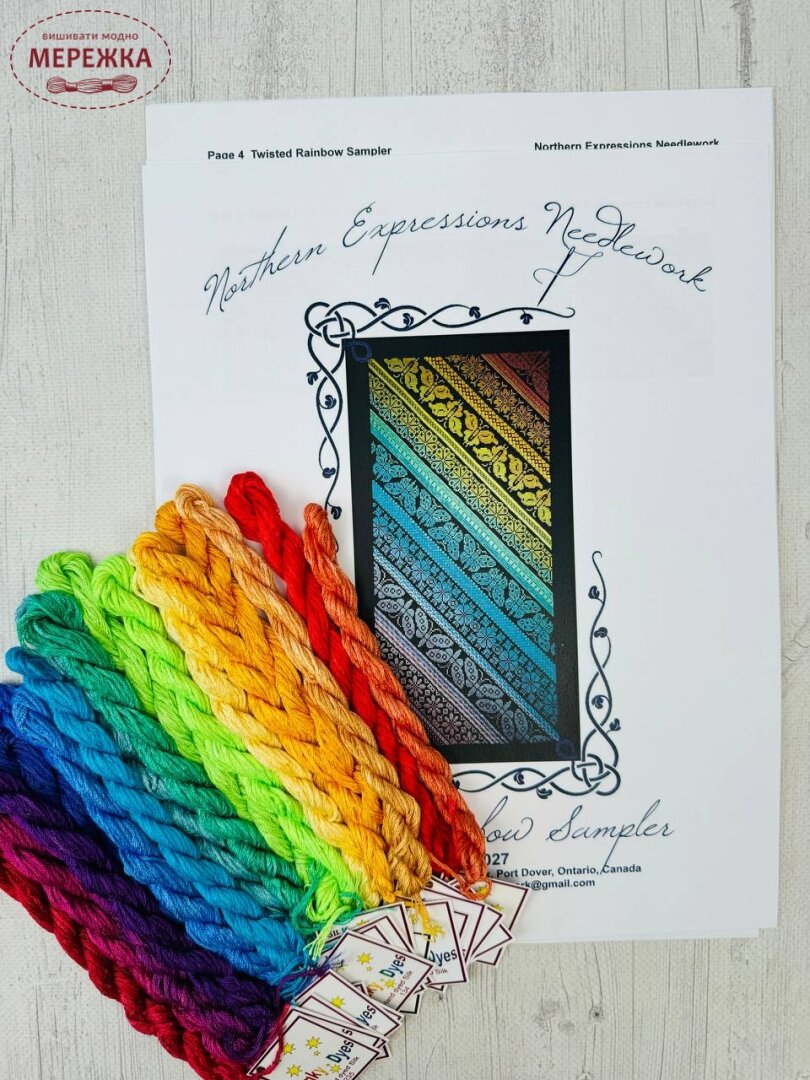 вишивати модно
МЕРЕЖКА
Page 4 Twisted Rainbow Sampler
Northern Expressions Needlework
Northern Expressions Needlework
Sampler
027
Port Dover, Ontario, Canada
@gmail.com
Dyes
Silk
134
Dyes
dyed Silk